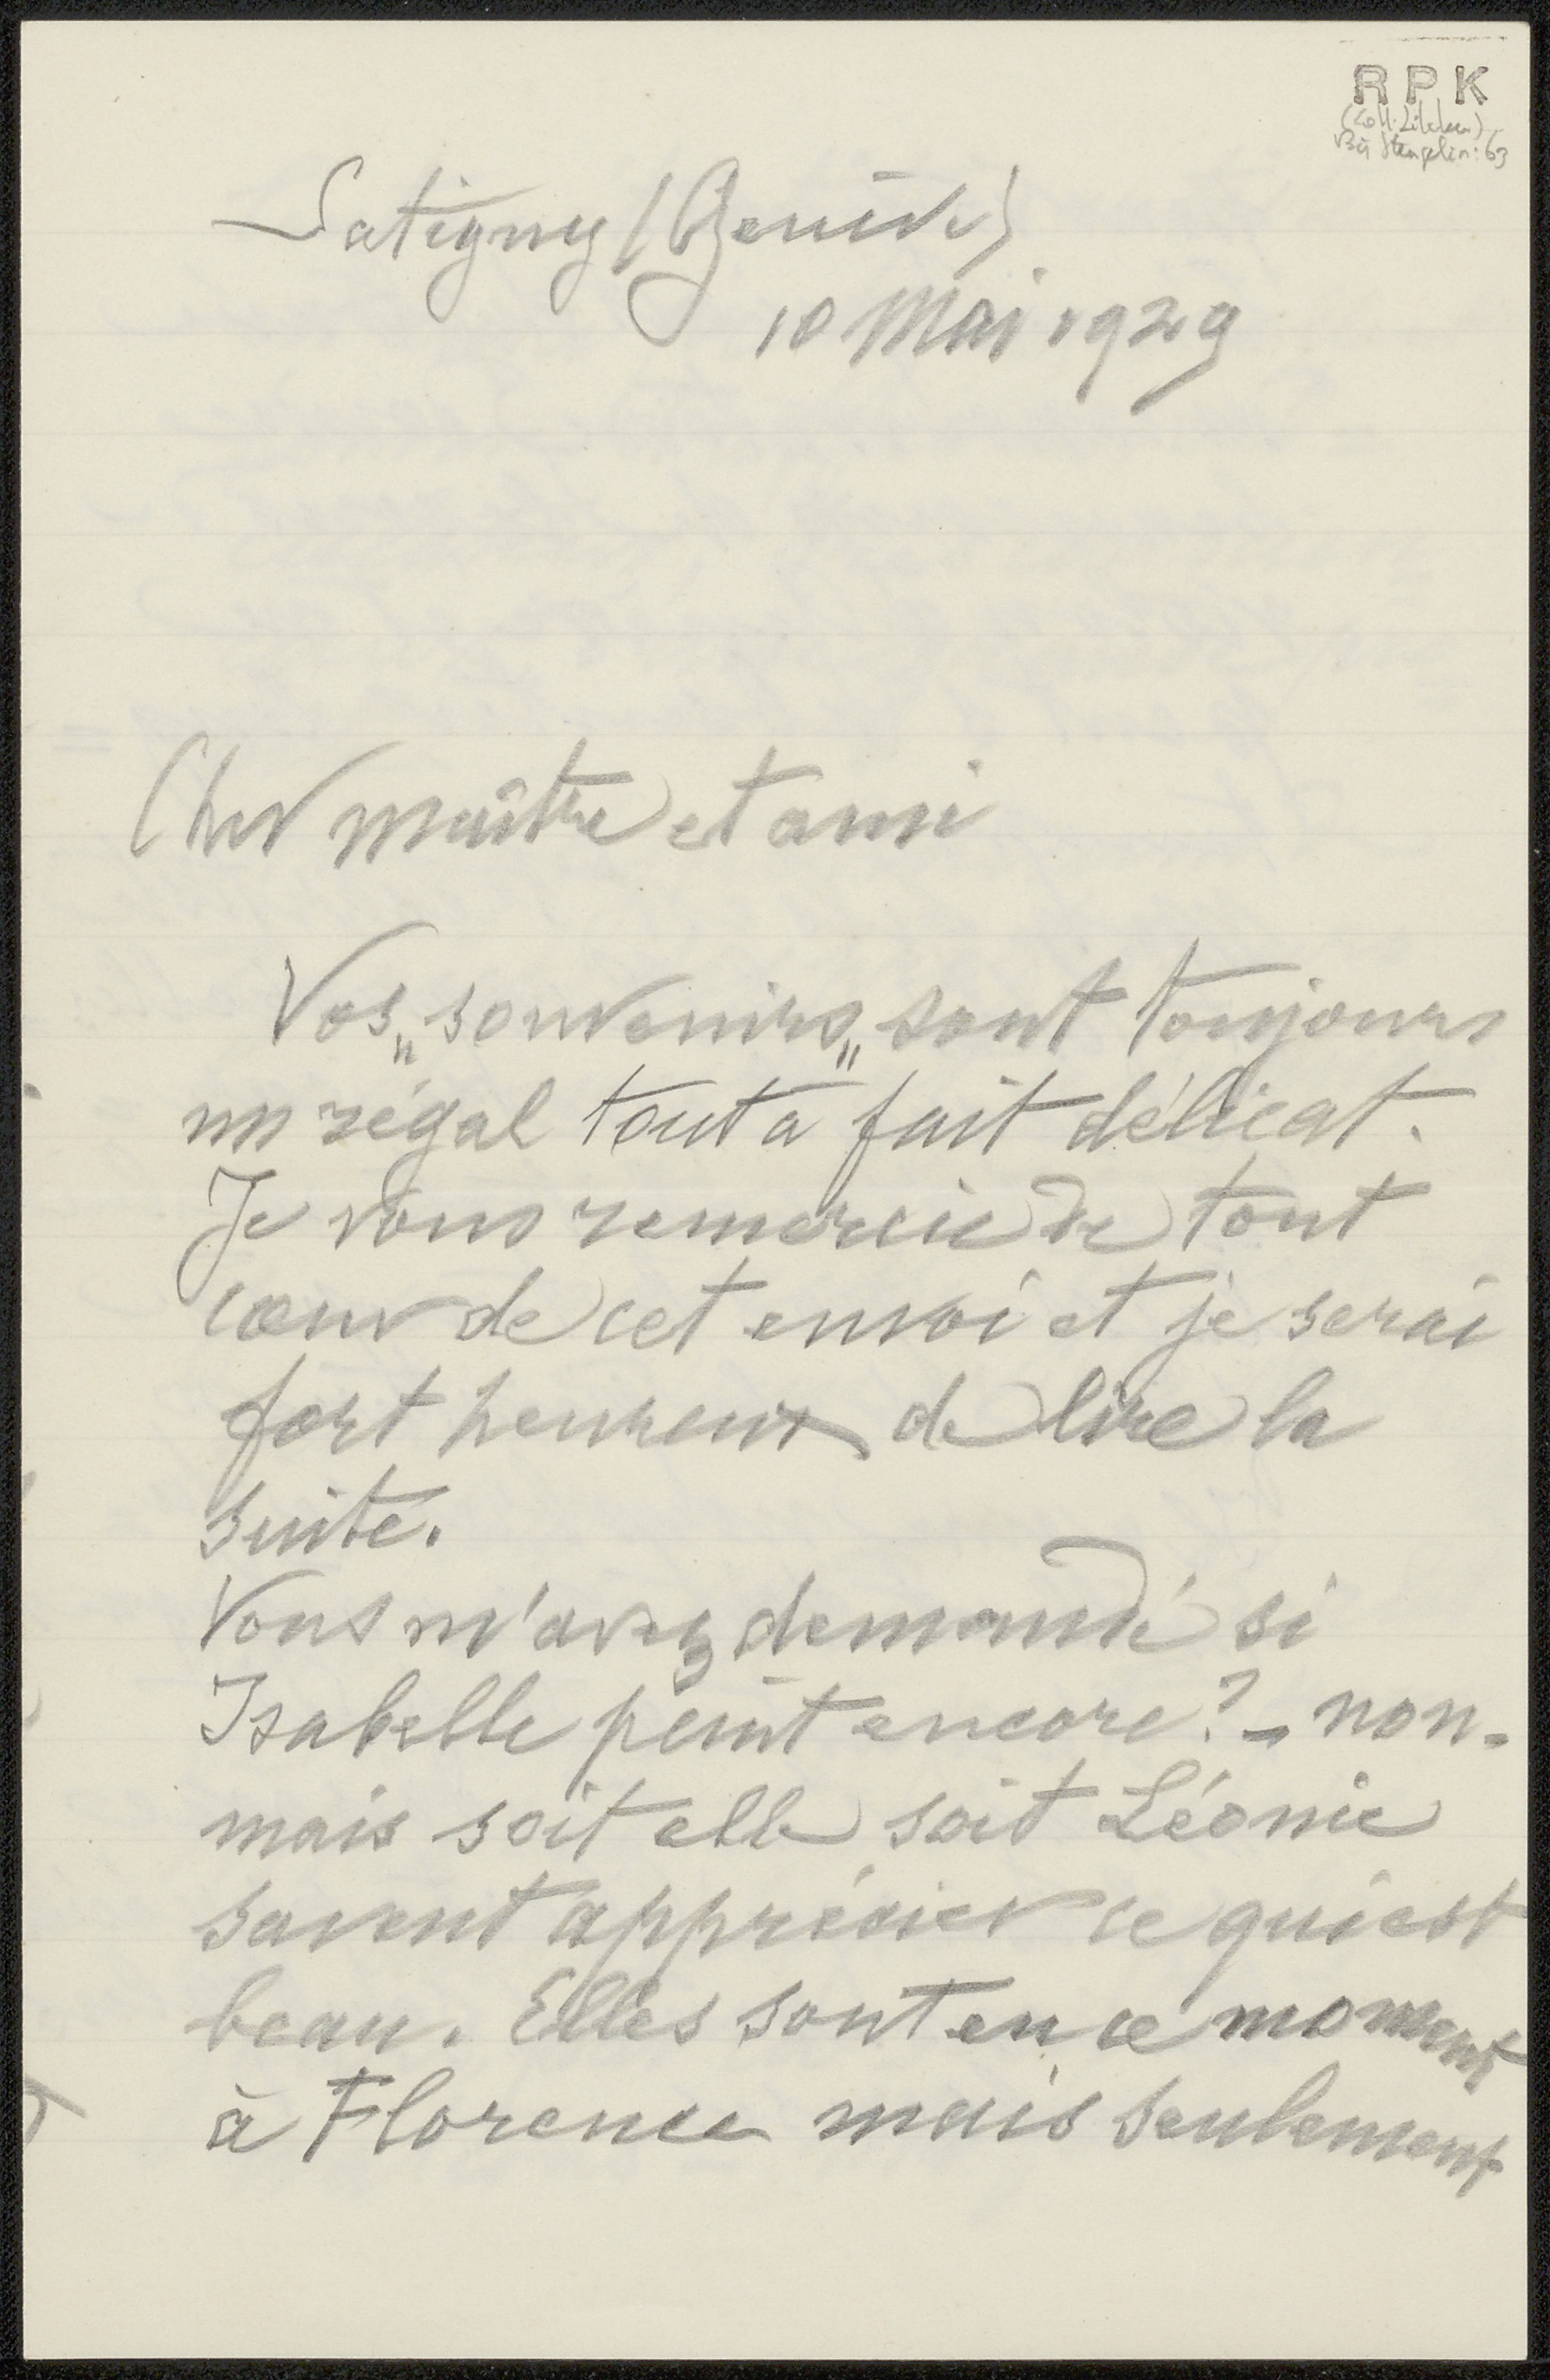 RPK
(Coll. Zilcken)
Satigny (Genève)
10 Mai 1929
Cher maître et ami
Vos „souvenirs„ sont toujours
un régal tout à fait délicat.
Je vous remercie de tout
cœur de cet envoi et je serai
fort heureux de lire la
suite.
Vous m'avez demandé si
Isabelle peint encore? - non -
mais soit elle soit Léonie
savent apprécier ce qui est
beau. Elles sont en ce moment
à Florence mais seulement